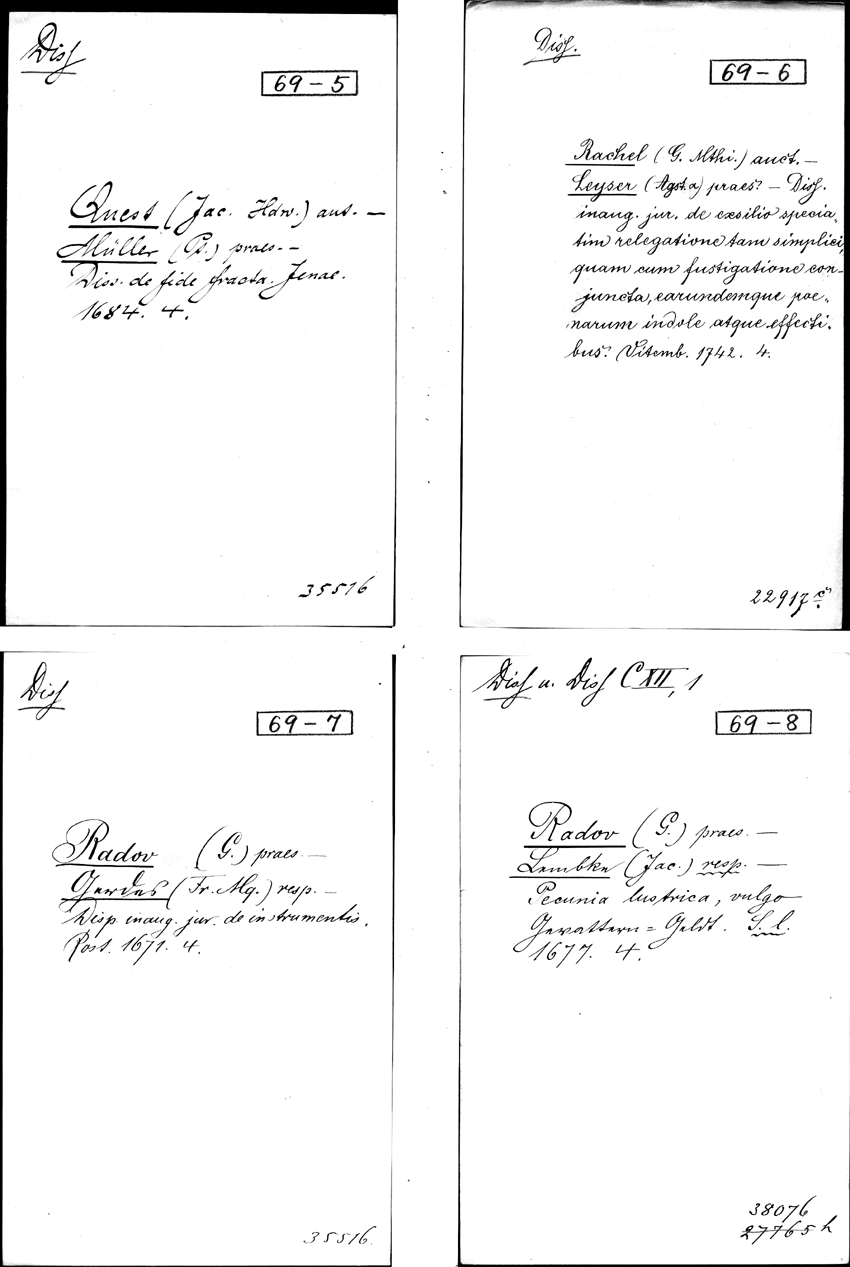 Diss
69-5
Quest (Jac. Hdw.) aut. —
Müller (Pt.) praes. —
Diss. de fide fracta. Jenae.
1684. 4.
35516
Diss.
69-6
Rachel (G. Mthi.) auct. —
Leyser (Agst. a) praes. — Diss.
inaug. jur. de exsilio specia-
tim relegatione tam simplici,
quam cum fustigatione con-
juncta, earundemque poe-
narum indole atque effecti-
bus. Vitemb. 1742. 4.
22917
Diss
69-7
Radov (G.) praes. —
Gerdes (Fr. Mg.) resp. —
Disp. inaug. jur. de instrumentis.
Rost. 1671. 4.
35516.
Diss u. Diss C XII, 1
69-8
Radov (G.) praes. —
Lembke (Jac.) resp. —
Pecunia lustrica, vulgo
Gevattern=Geldt. S. l.
1677. 4.
38076
27765 h